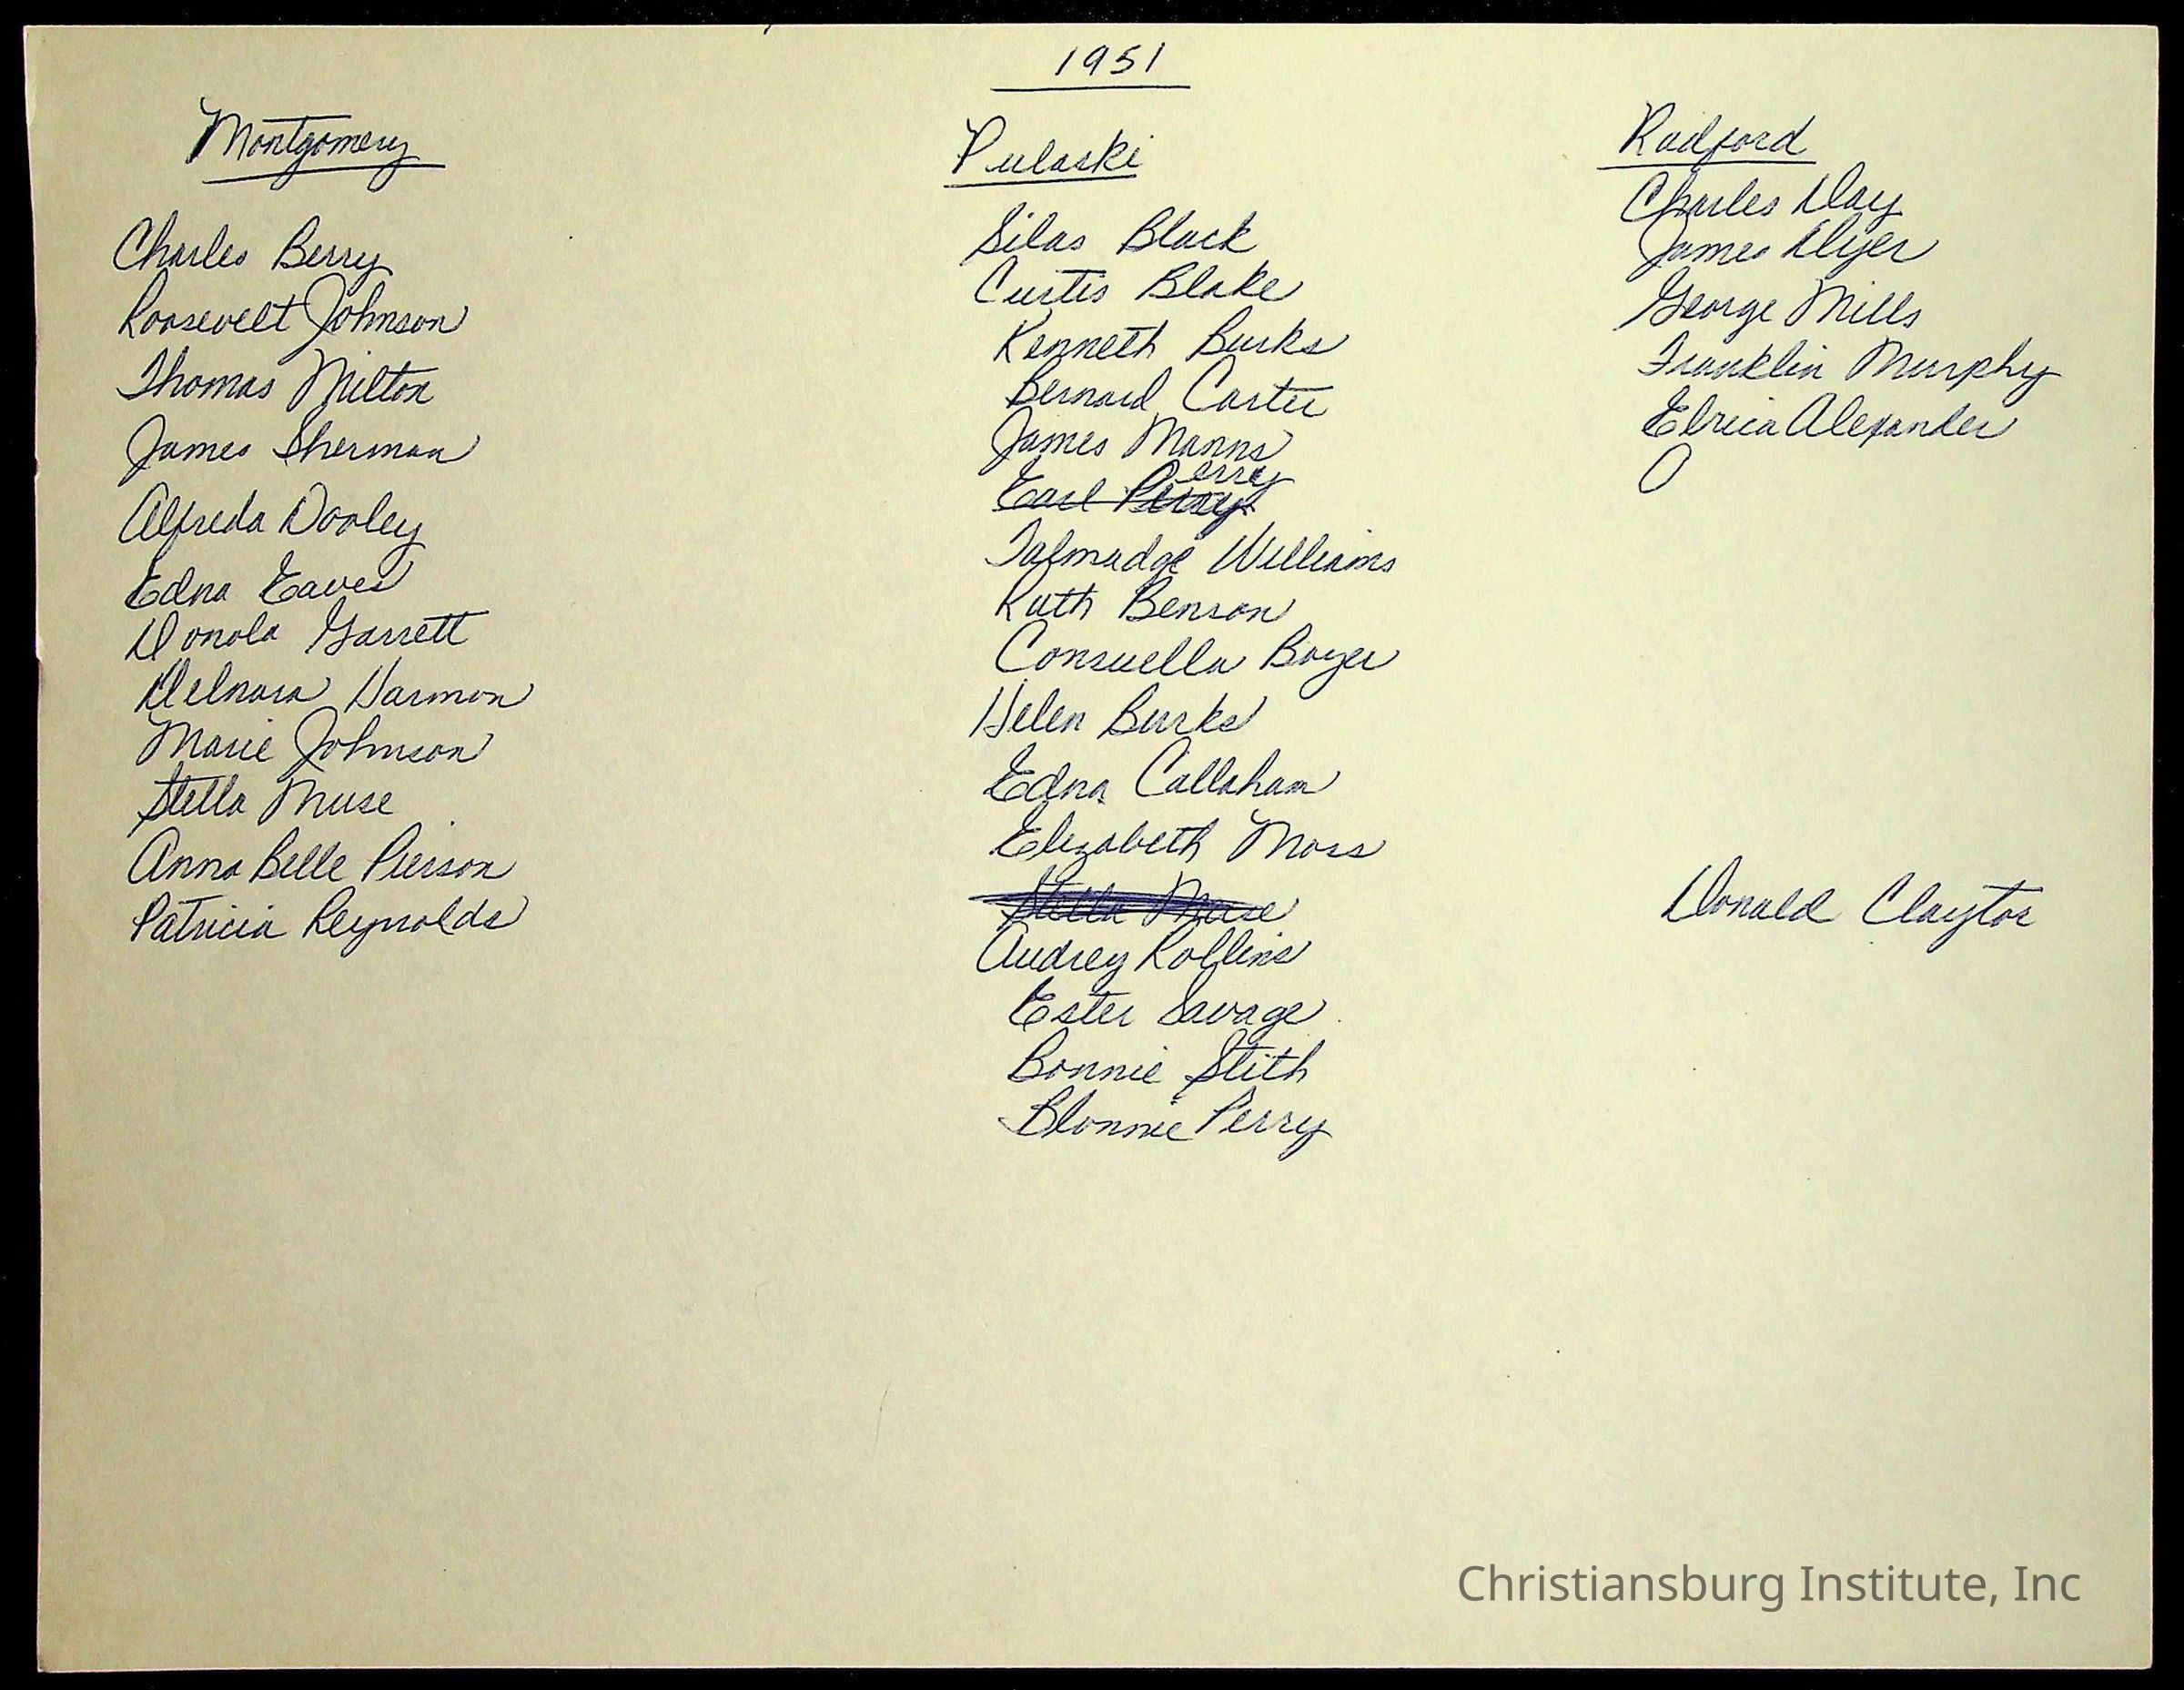 1951
Montgomery
Charles Berry
Roosevelt Johnson
Thomas Milton
James Sherman
Alfreda Dooley
Edna Eaves
Donola Garrett
Delnora Harmon
Marie Johnson
Stella Muse
Anna Belle Pierson
Patricia Reynolds
Pulaski
Silas Black
Curtis Blake
Kenneth Burks
Bernard Carter
James Manns
erry
Earl Perry
Talmadge Williams
Ruth Benson
Consuella Boyer
Helen Burks
Edna Callaham
Elizabeth Moss
Stella Muse
Audrey Rollins
Ester Savage
Bonnie Stith
Blonnie Perry
Radford
Charles Day
James Dyer
George Mills
Franklin Murphy
Elrica Alexander
Donald Claytor
Christiansburg Institute, Inc